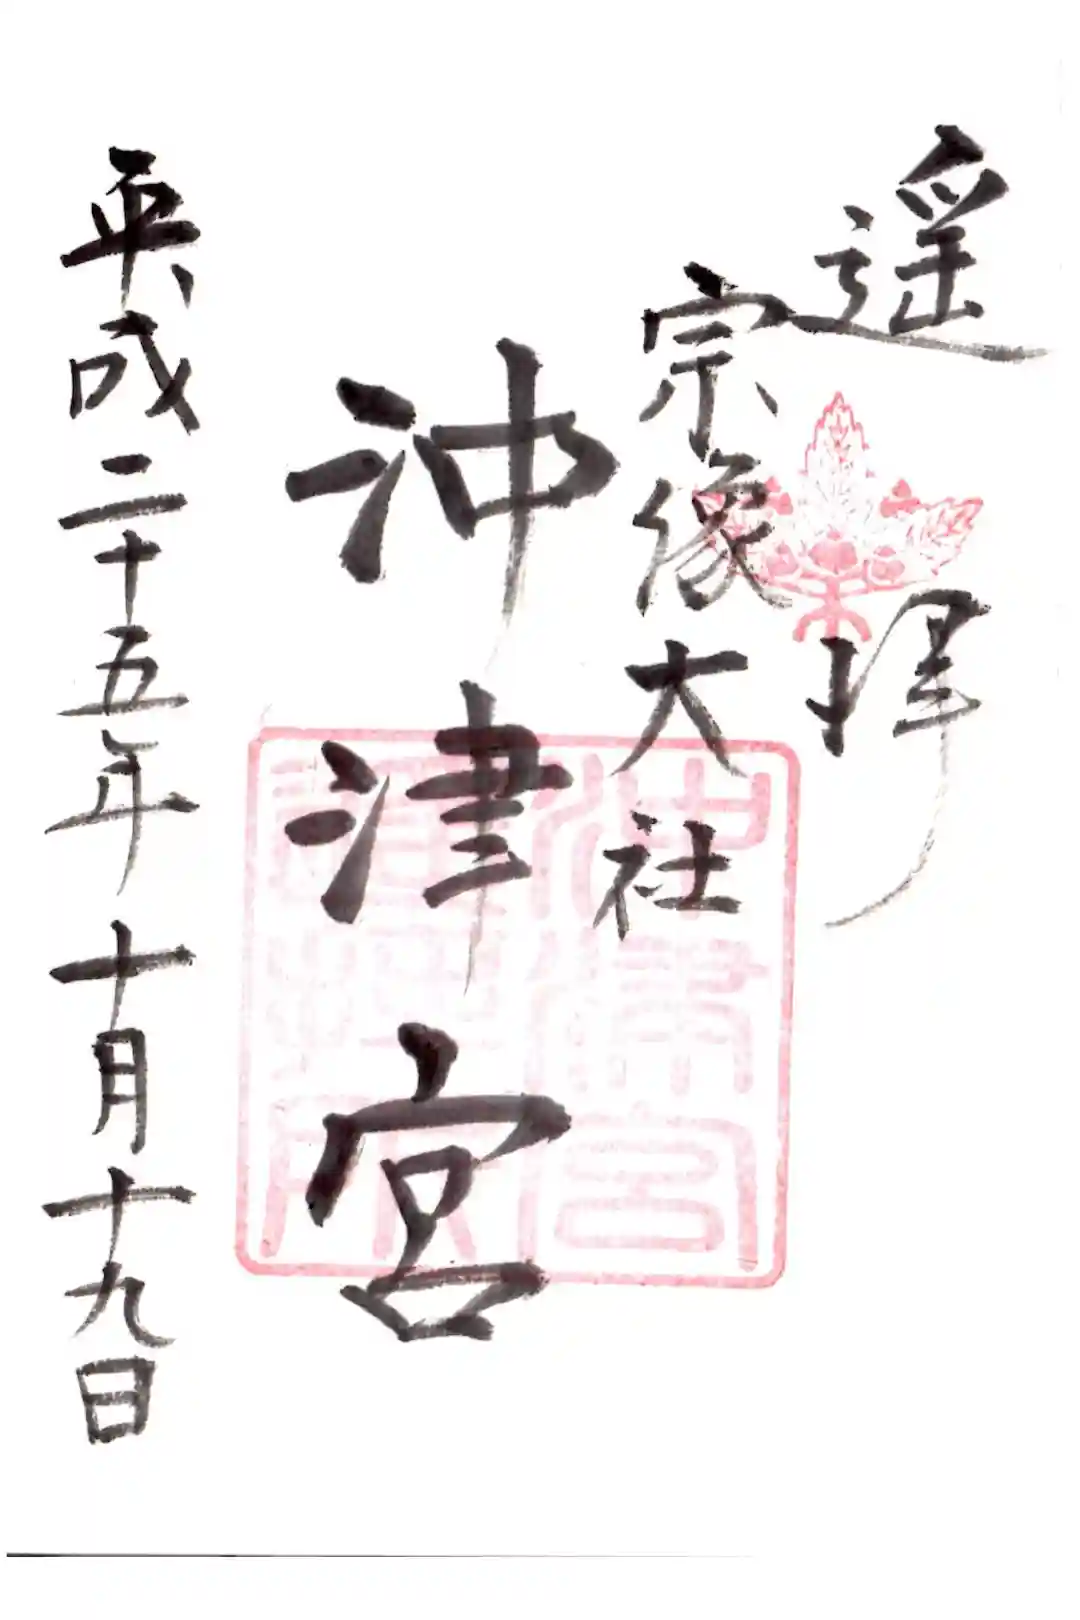 遥拝
宗像大社
沖津宮
平成二十五年十月十九日
沖津宮
遥拝所